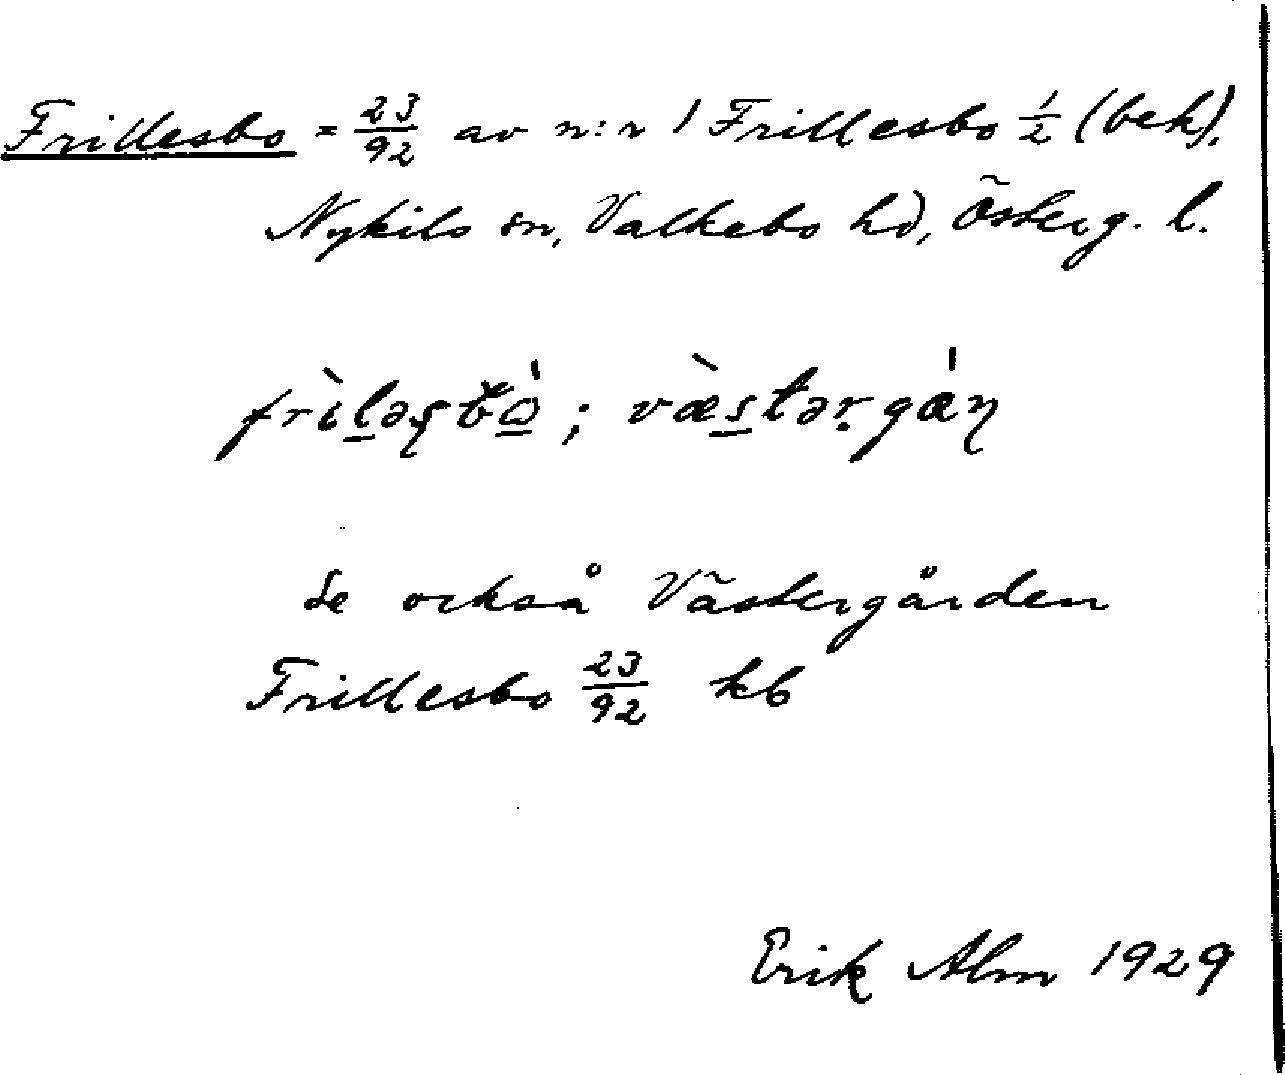 Frillesbo = 23/92 av n:r 1 Frillesbo 1/2 (bek).
Nykils sn, Valkebo hd, Österg. l.
frìl̲əʂƀò̲; væ̀s̲tərg̣áɳ
se också Västergården
Frillesbo 23/92 kb
Erik Alm 1929